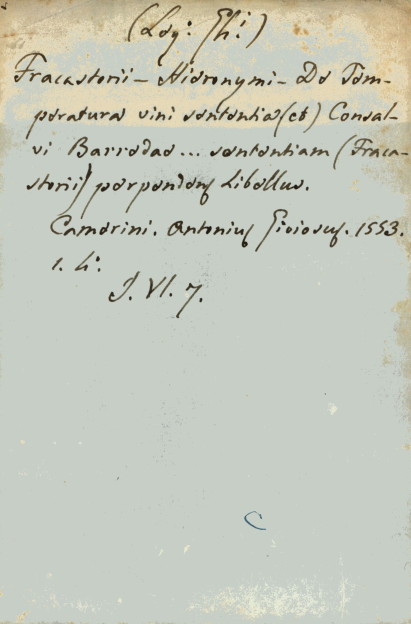 (Log: Ph:)
Fracastorii - Hieronymi - De Tem-
peratura vini sententia (et) Consal-
vi Barredae ... sententiam (Fraca-
storii) perpendens Libellus.
Camerini. Antonius Gioiosus. 1553.
1. 4:
J. VI. 7.
C